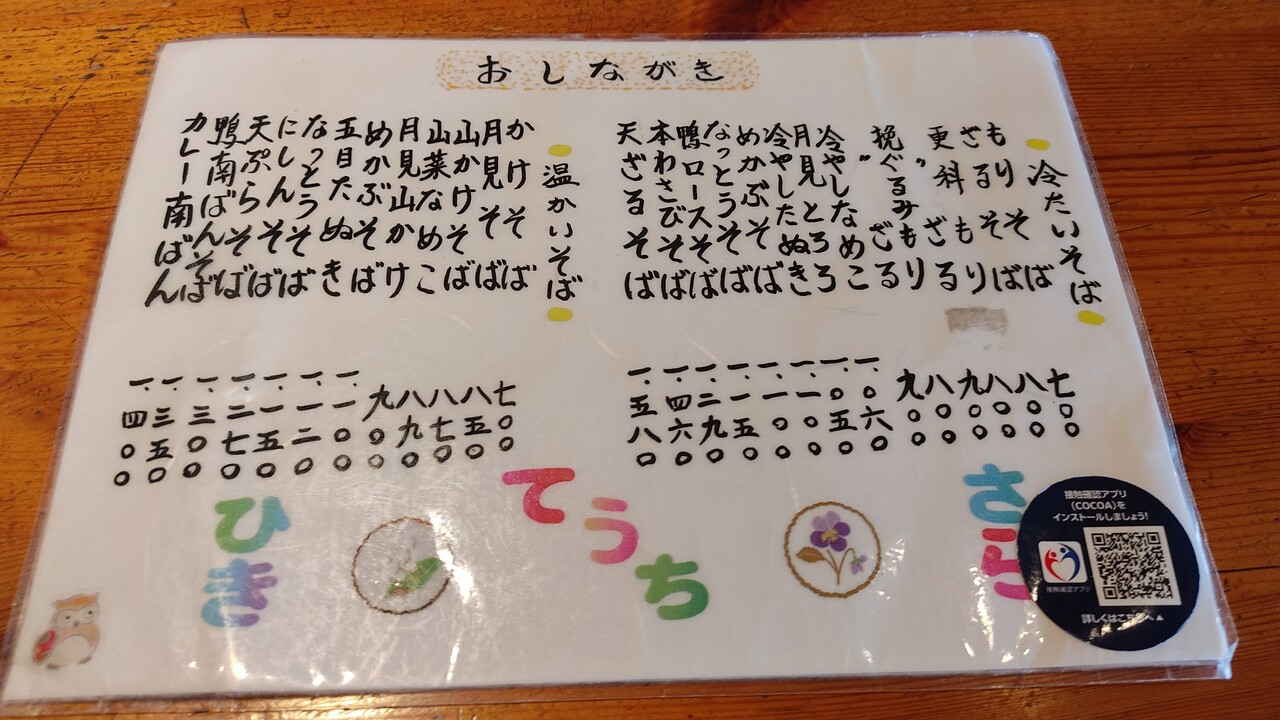 おしながき
冷たいそば
もりそば
ざるそば
更科
もり
ざる
挽"ぐるみ"
もり
ざる
冷やしなめこ
月見とろろ
冷やしたぬき
めかぶそば
なっとうそば
鴨ロースそば
本わさびそば
天ざるそば
七〇〇
八〇〇
八〇〇
九〇〇
八〇〇
九〇〇
一.〇六〇
一.〇五〇
一.一〇〇
一.一〇〇
一.一五〇
一.二九〇
一.四六〇
一.五八〇
温かいそば
かけそば
月見そば
山かけそば
山菜なめこ
月見山かけ
めかぶそば
五目たぬき
なっとうそば
にしんそば
天ぷらそば
鴨南ばんそば
カレー南ばん
七〇〇
八五〇
八七〇
八九〇
九〇〇
一.一〇〇
一.一二〇
一.一五〇
一.二七〇
一.三〇〇
一.三五〇
一.四〇〇
さら
てうち
ひき
接触確認アプリ
(COCOA)を
インストールしましょう!
接触確認アプリ
詳しくはこちらへ▲